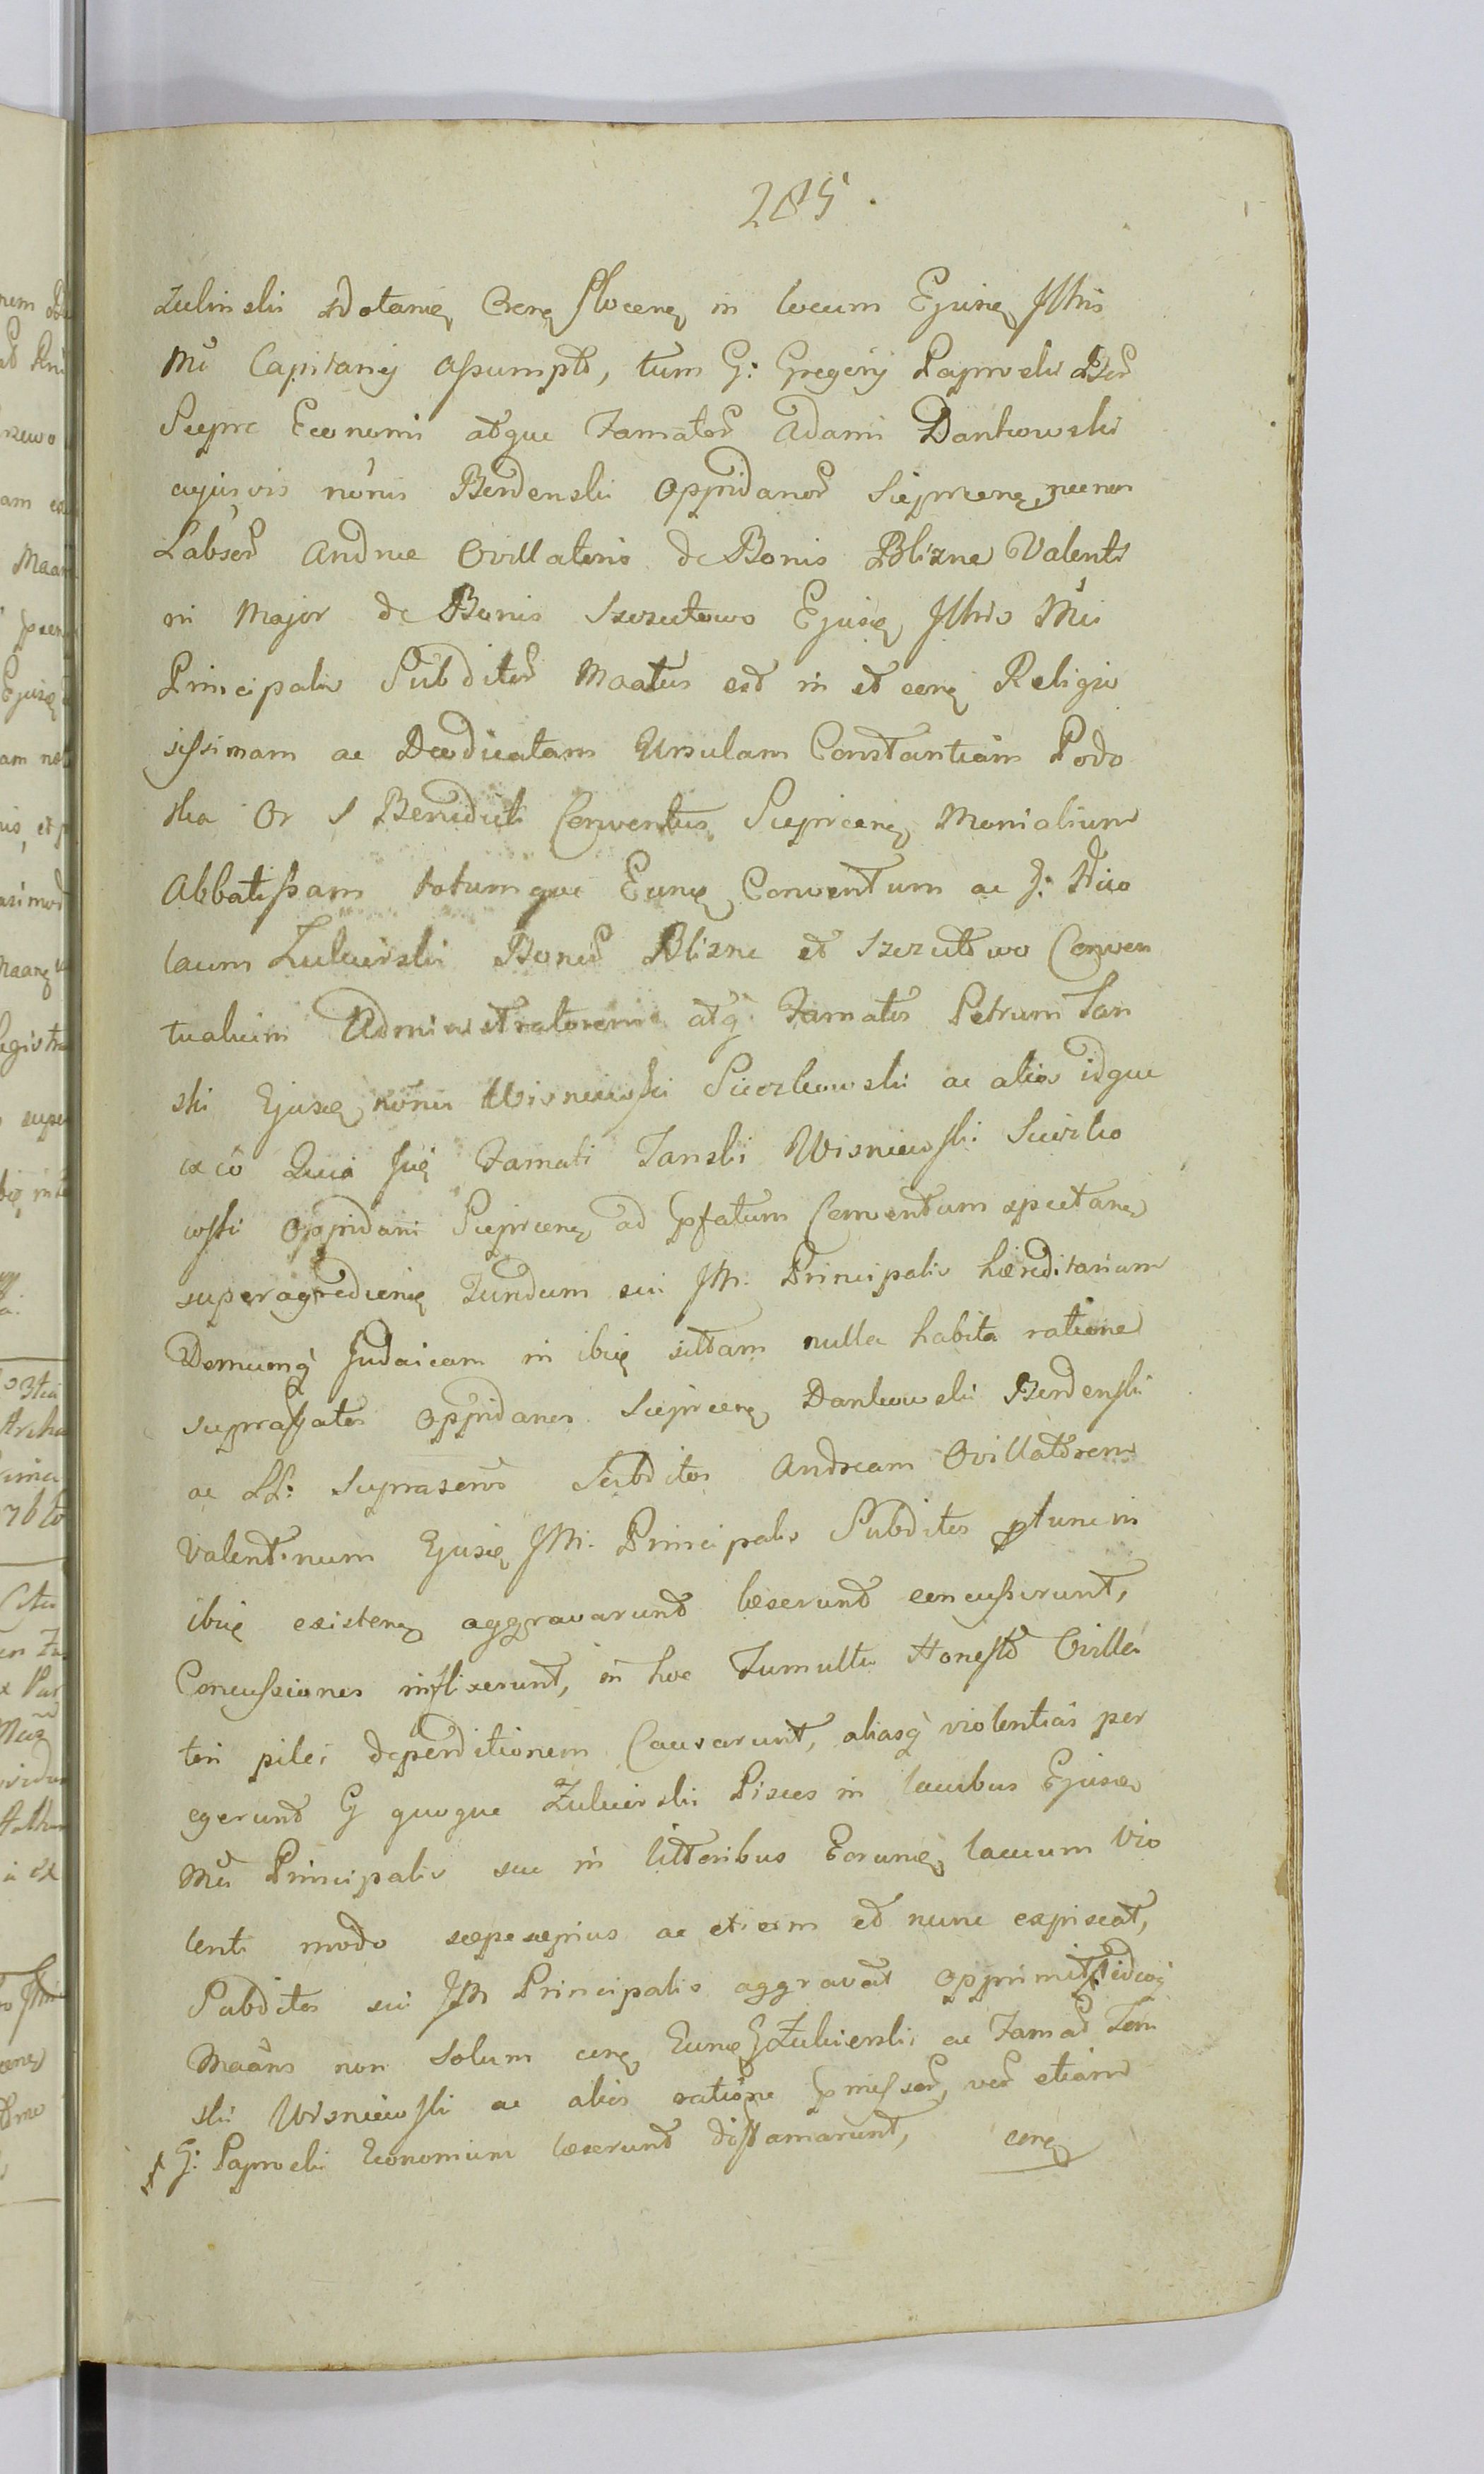 285.
Zulinskii Notarię Crenę Plocenę in locum Ejusę Illris
Mci Capitanij assumpto, tum G: Gregorij Paprocki
Sieprc Economi atque Famator Adami Dankowski
nonis Berdenski Oppidanor Sieprcenę, necnon
Labsor Andrae Ovillatoris de Bonis Blizne Valenti
ni Major de Bonis Szczutowo Ejusę Illris Mci
Principalis Subditor Maatus est in et conę Religio
sissimam ac Deo dicatam Ursulam Constantiam Podo
ska Or S Benedicti Conventus Sieprcenę Monialium
Abbatissam totumque Eunę Conventum ac G: Nico
laum Zuluirski Bonor Blizne et Szczutowo Conven
tualium Administratorem atq Famatos Petrum Jan
ski Ejusę nonis Wisniewski Sierzkowski ac alios idque
ex eo Quia suę Famati Janski Wisniewski Sierzko
wski Oppidani Sieprcenę ad pfatum Conventum spectanę
superagredienę Fundum sui JM. Principalis hæreditarium
Domumq Judaicam in ibię sittam nulla habita ratione
suprafatos Oppidanos Sieprcenę Dankowski Berdenski
ac LL: suprascros Subditos Andream Ovillatorem
Valentinum Ejusę JM. Principalis Subditos ptunc in
ibię existenę aggravarunt læserunt concusserunt,
Concussiones inflixerunt, in hoc Tumultu Honesto Ovilla
tori pilei deperditionem Causarunt, aliasq violentias per
egerunt G quoque Zuluirski Pisces in lacubus Ejusę
Mci Principalis suę in littoribus Eorunę lacuum vio
lenti modo sæpesæpius ac etiam et nunc expiscat,
Subditos sui JM Principalis aggravat opprimit, ideoq
Maans non solum conę Eunę G Zuluirski ac Famat Jan
ski Wisniewski ac alios ratione pmissor, ver etiam
G: Paprocki Economum læserunt diffamarunt, conę